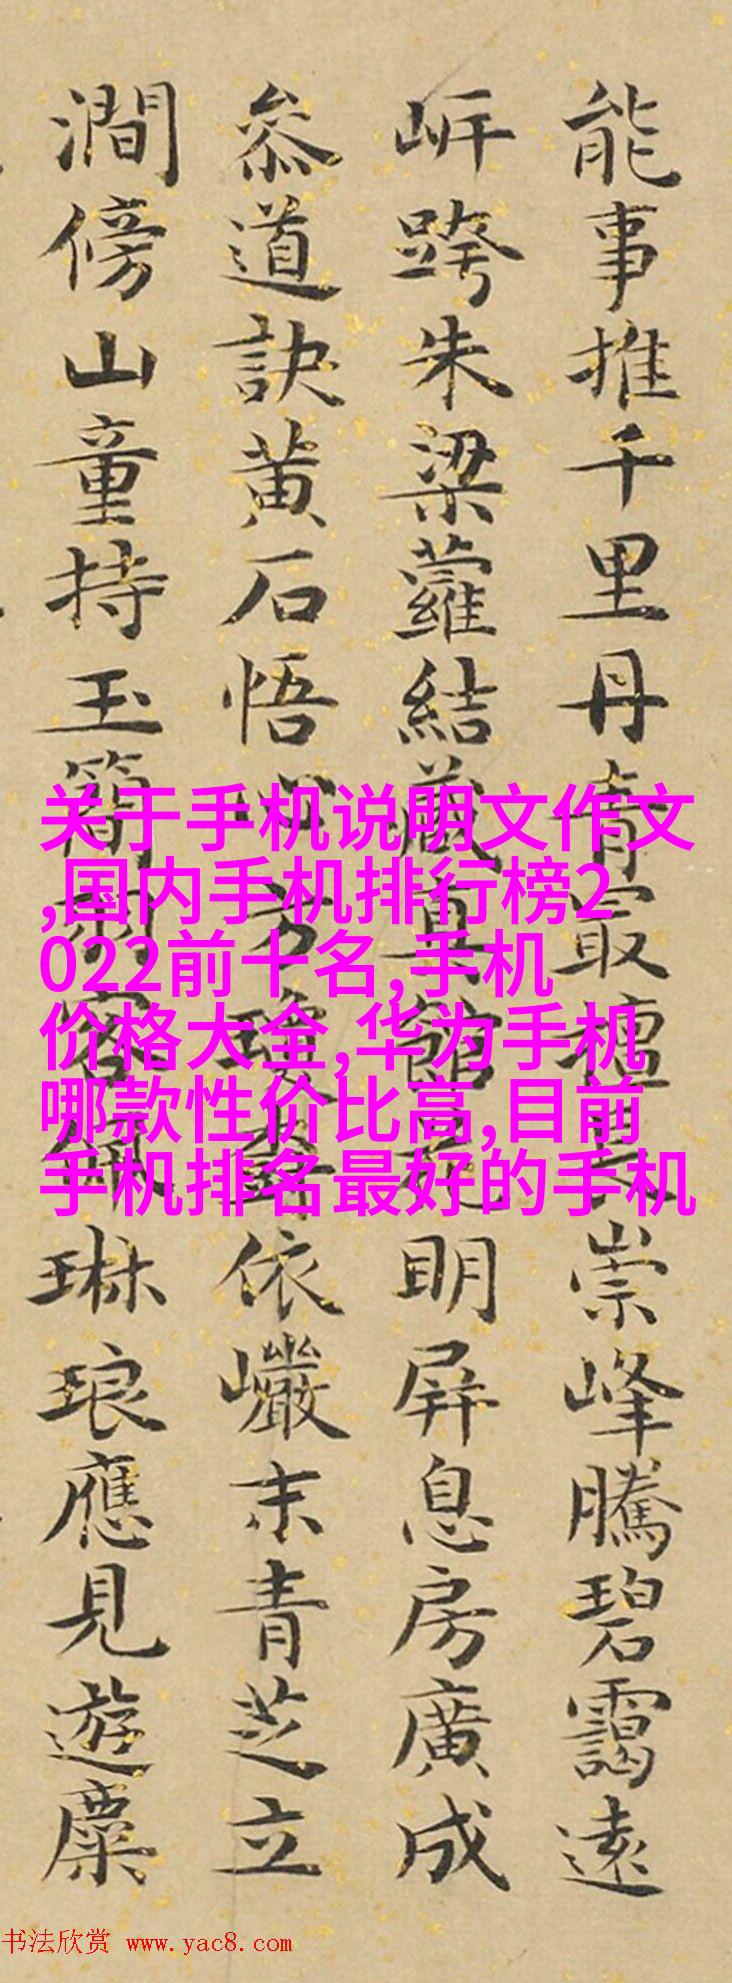 能事推千里丹青冣檀長崇峰騰碧靄遠
岍跨朱梁蘿結藏真館花明屏息房廣成
叅道訣黃石悟心方依巘末青芝立
澗傍山童持玉簡羽客佩琳琅應見遊麋
关于手机说明文作文
,国内手机排行榜2
022前十名,手机
价格大全,华为手机
哪款性价比高,目前
手机排名最好的手机
书法欣赏 www.yac8.com